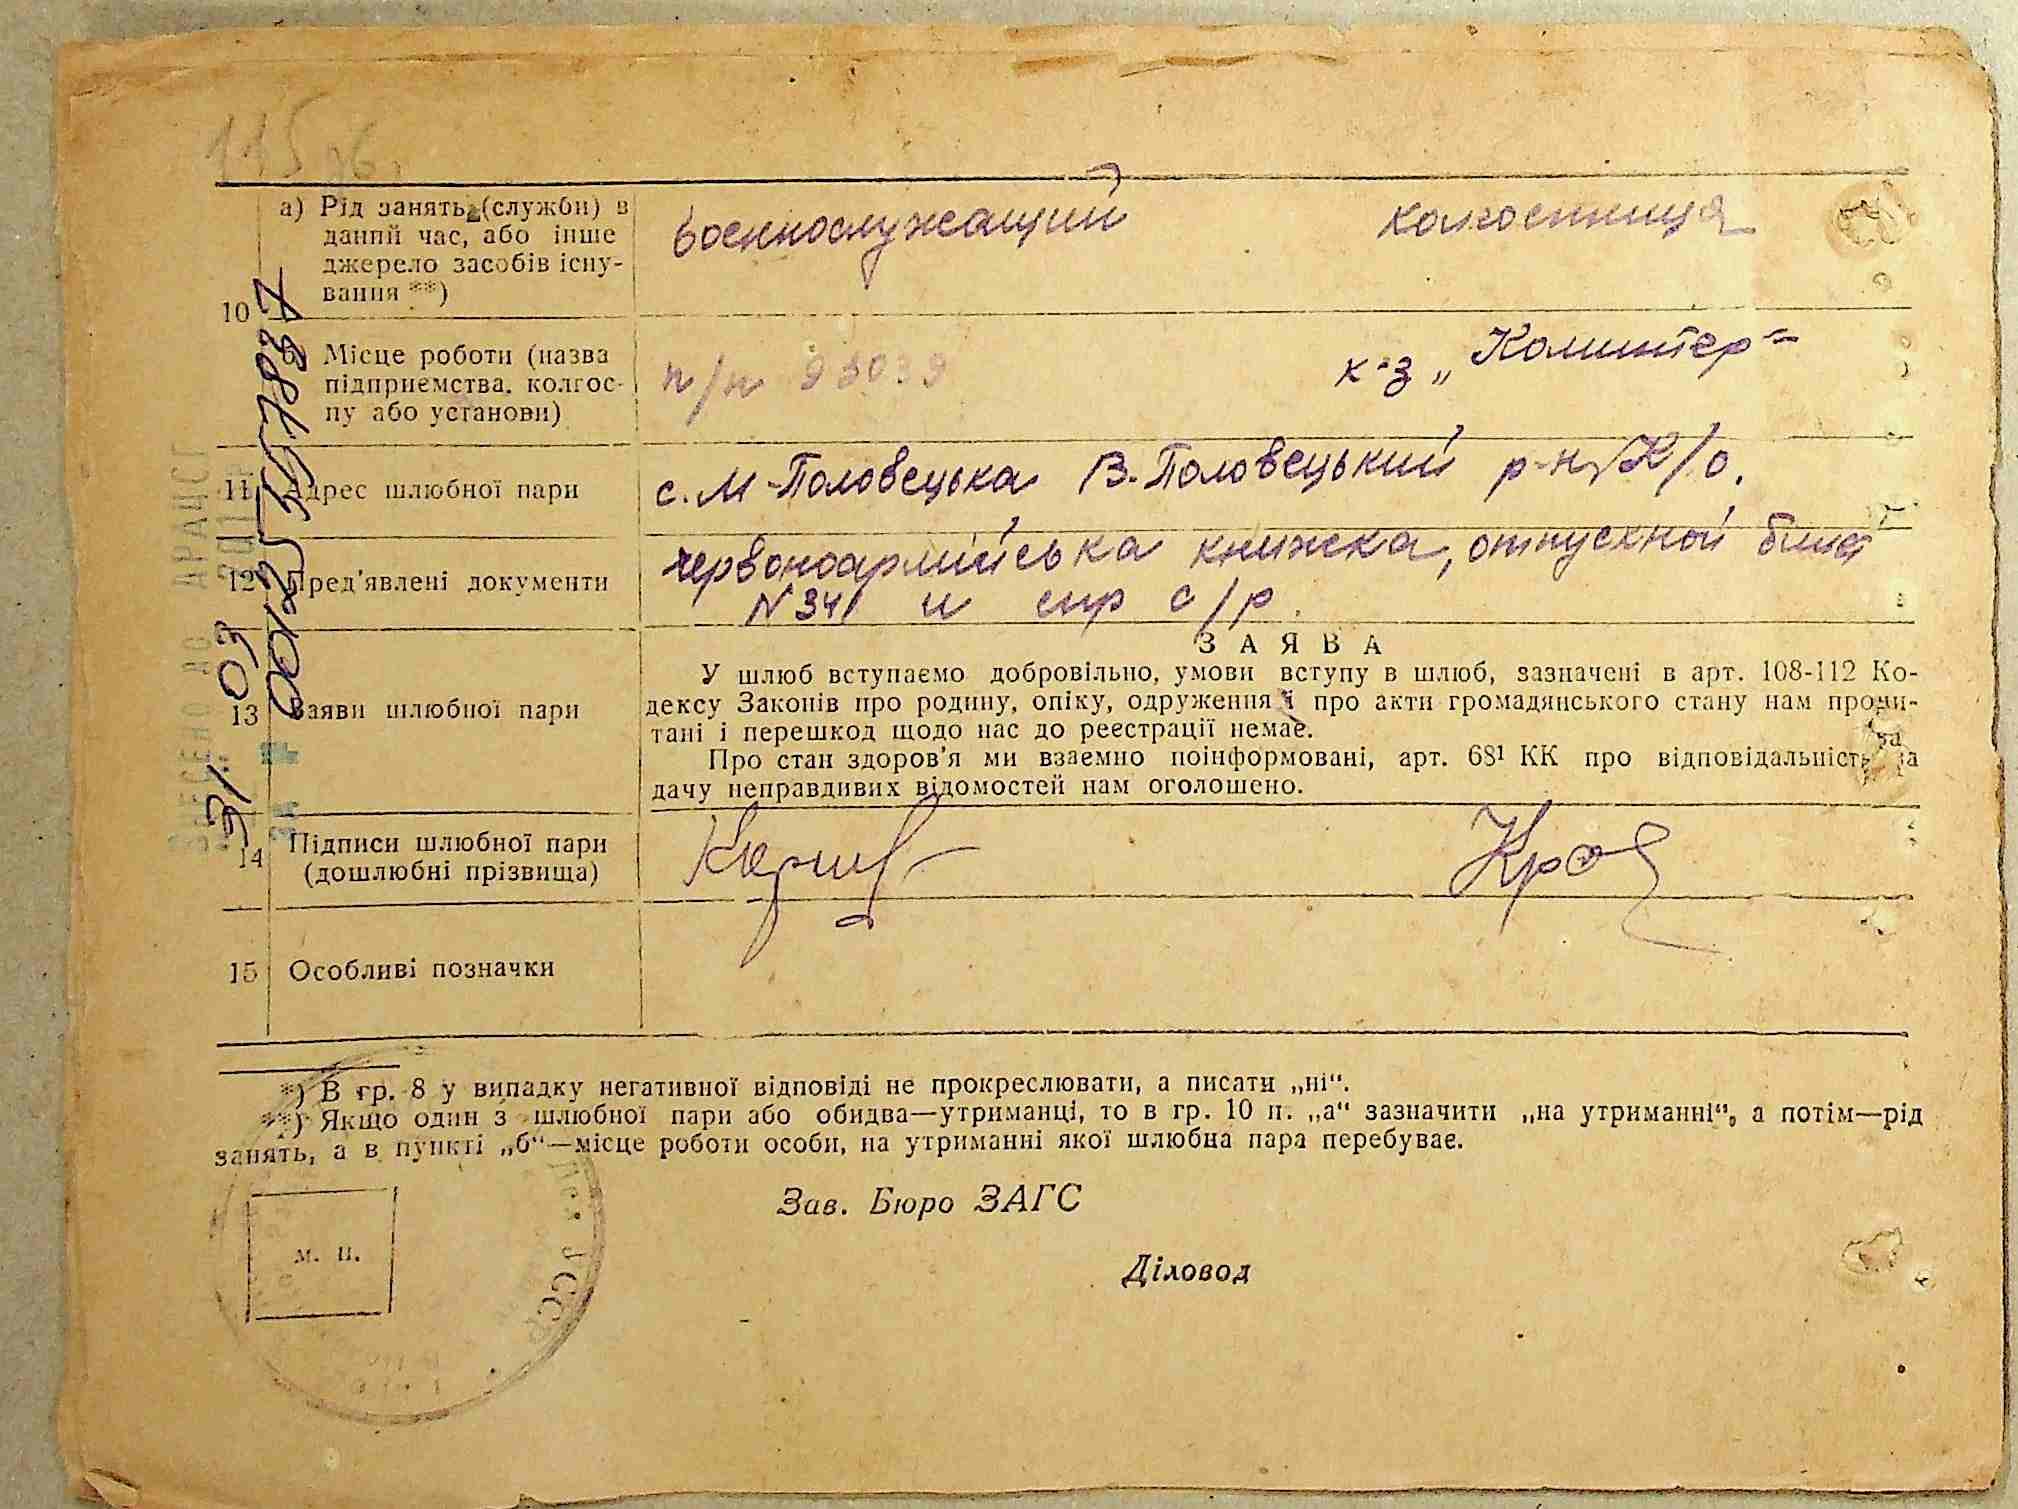 115
а) Рід занять (служби) в
даний час, або інше
джерело засобів існу-
вання **)
военнослужащий
колгоспниця
10
Місце роботи (назва
підприємства, колгос-
пу або установи)
п/п 93039
к-з „Комінтер"
11 Адрес шлюбної пари
с. М-Половецька В.Половецький р-н, К/о.
12 Пред'явлені документи
червоноармійська книжка, отпускной билет
N 341 и спр с/р.
13 Заяви шлюбної пари
ЗАЯВА
У шлюб вступаємо добровільно, умови вступу в шлюб, зазначені в арт. 108-112 Ко-
дексу Законів про родину, опіку, одруження і про акти громадянського стану нам прочи-
тані і перешкод щодо нас до реєстрації немає.
Про стан здоров'я ми взаємно поінформовані, арт. 68¹ КК про відповідальність за
дачу неправдивих відомостей нам оголошено.
14 Підписи шлюбної пари
(дошлюбні прізвища)
15 Особливі позначки
*) В гр. 8 у випадку негативної відповіді не прокреслювати, а писати „ні“.
**) Якщо один з шлюбної пари або обидва—утриманці, то в гр. 10 п. „а“ зазначити „на утриманні“, а потім—рід
занять, а в пункті „б“—місце роботи особи, на утриманні якої шлюбна пара перебуває.
Зав. Бюро ЗАГС
м. п.
Діловод
31 03
ВНЕСЕНО ДО ДРАЦСГ
ЗА №
УССР